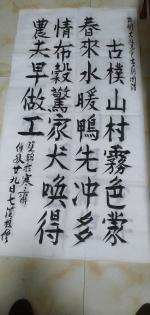 古樸山村霧色蒙
春來水暖鴨先冲多
情布穀驚家犬喚得
農夫早做工